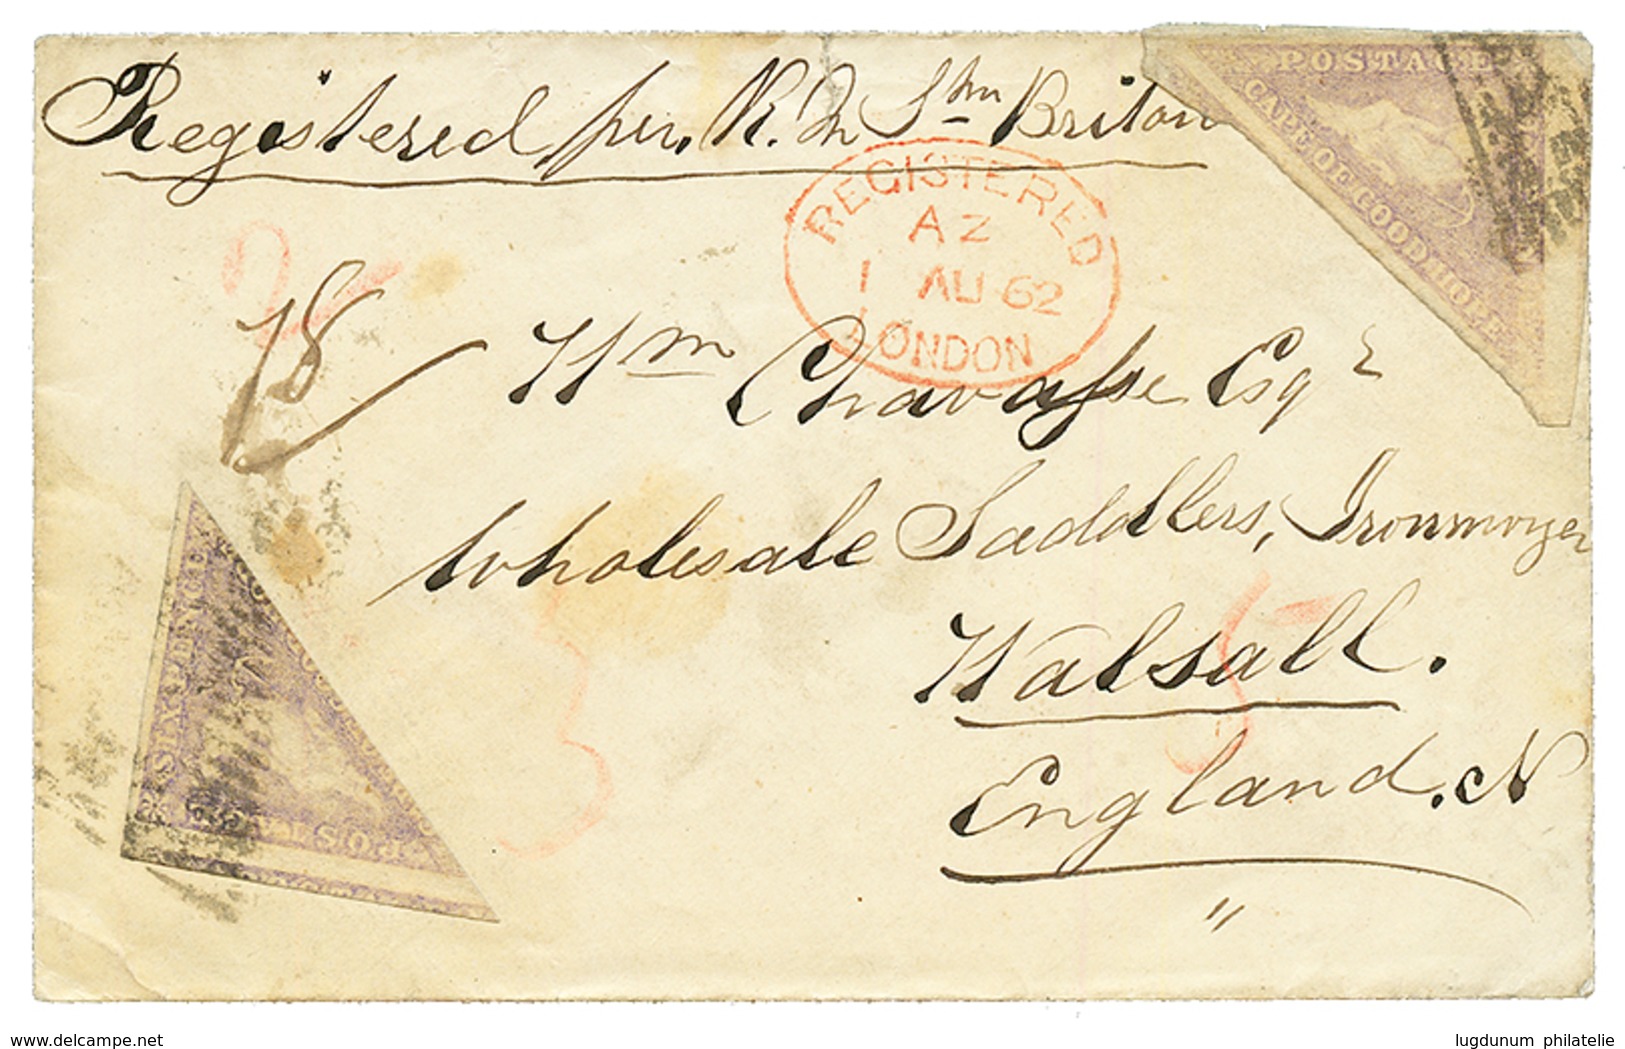 Registered per R. M Stmr Briton
POSTAGE
CAPE OF GOOD HOPE
REGISTERED
AZ
1 AU 62
LONDON
2
18/
Wm Chavasse Esqr
Wholesale Saddlers, Ironmonger
Walsall.
England.
SIXPENCE
POSTAGE
3
5
www.delcampe.net
lugdunum philatelie